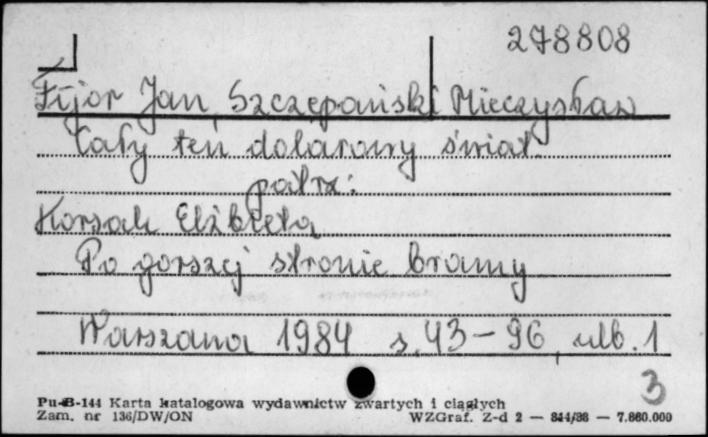 278808
Fijor Jan, Szczepański Mieczysław
Cały ten dolarowy świat.
patrz:
Korsak Elżbieta
Po gorszej stronie bramy
Warszawa 1984 s. 43-96, ulb. 1
3
Pu-B-144 Karta katalogowa wydawnictw zwartych i ciągłych
Zam. nr 136/DW/ON WZGraf. Z-d 2 — 844/86 — 7.860.000